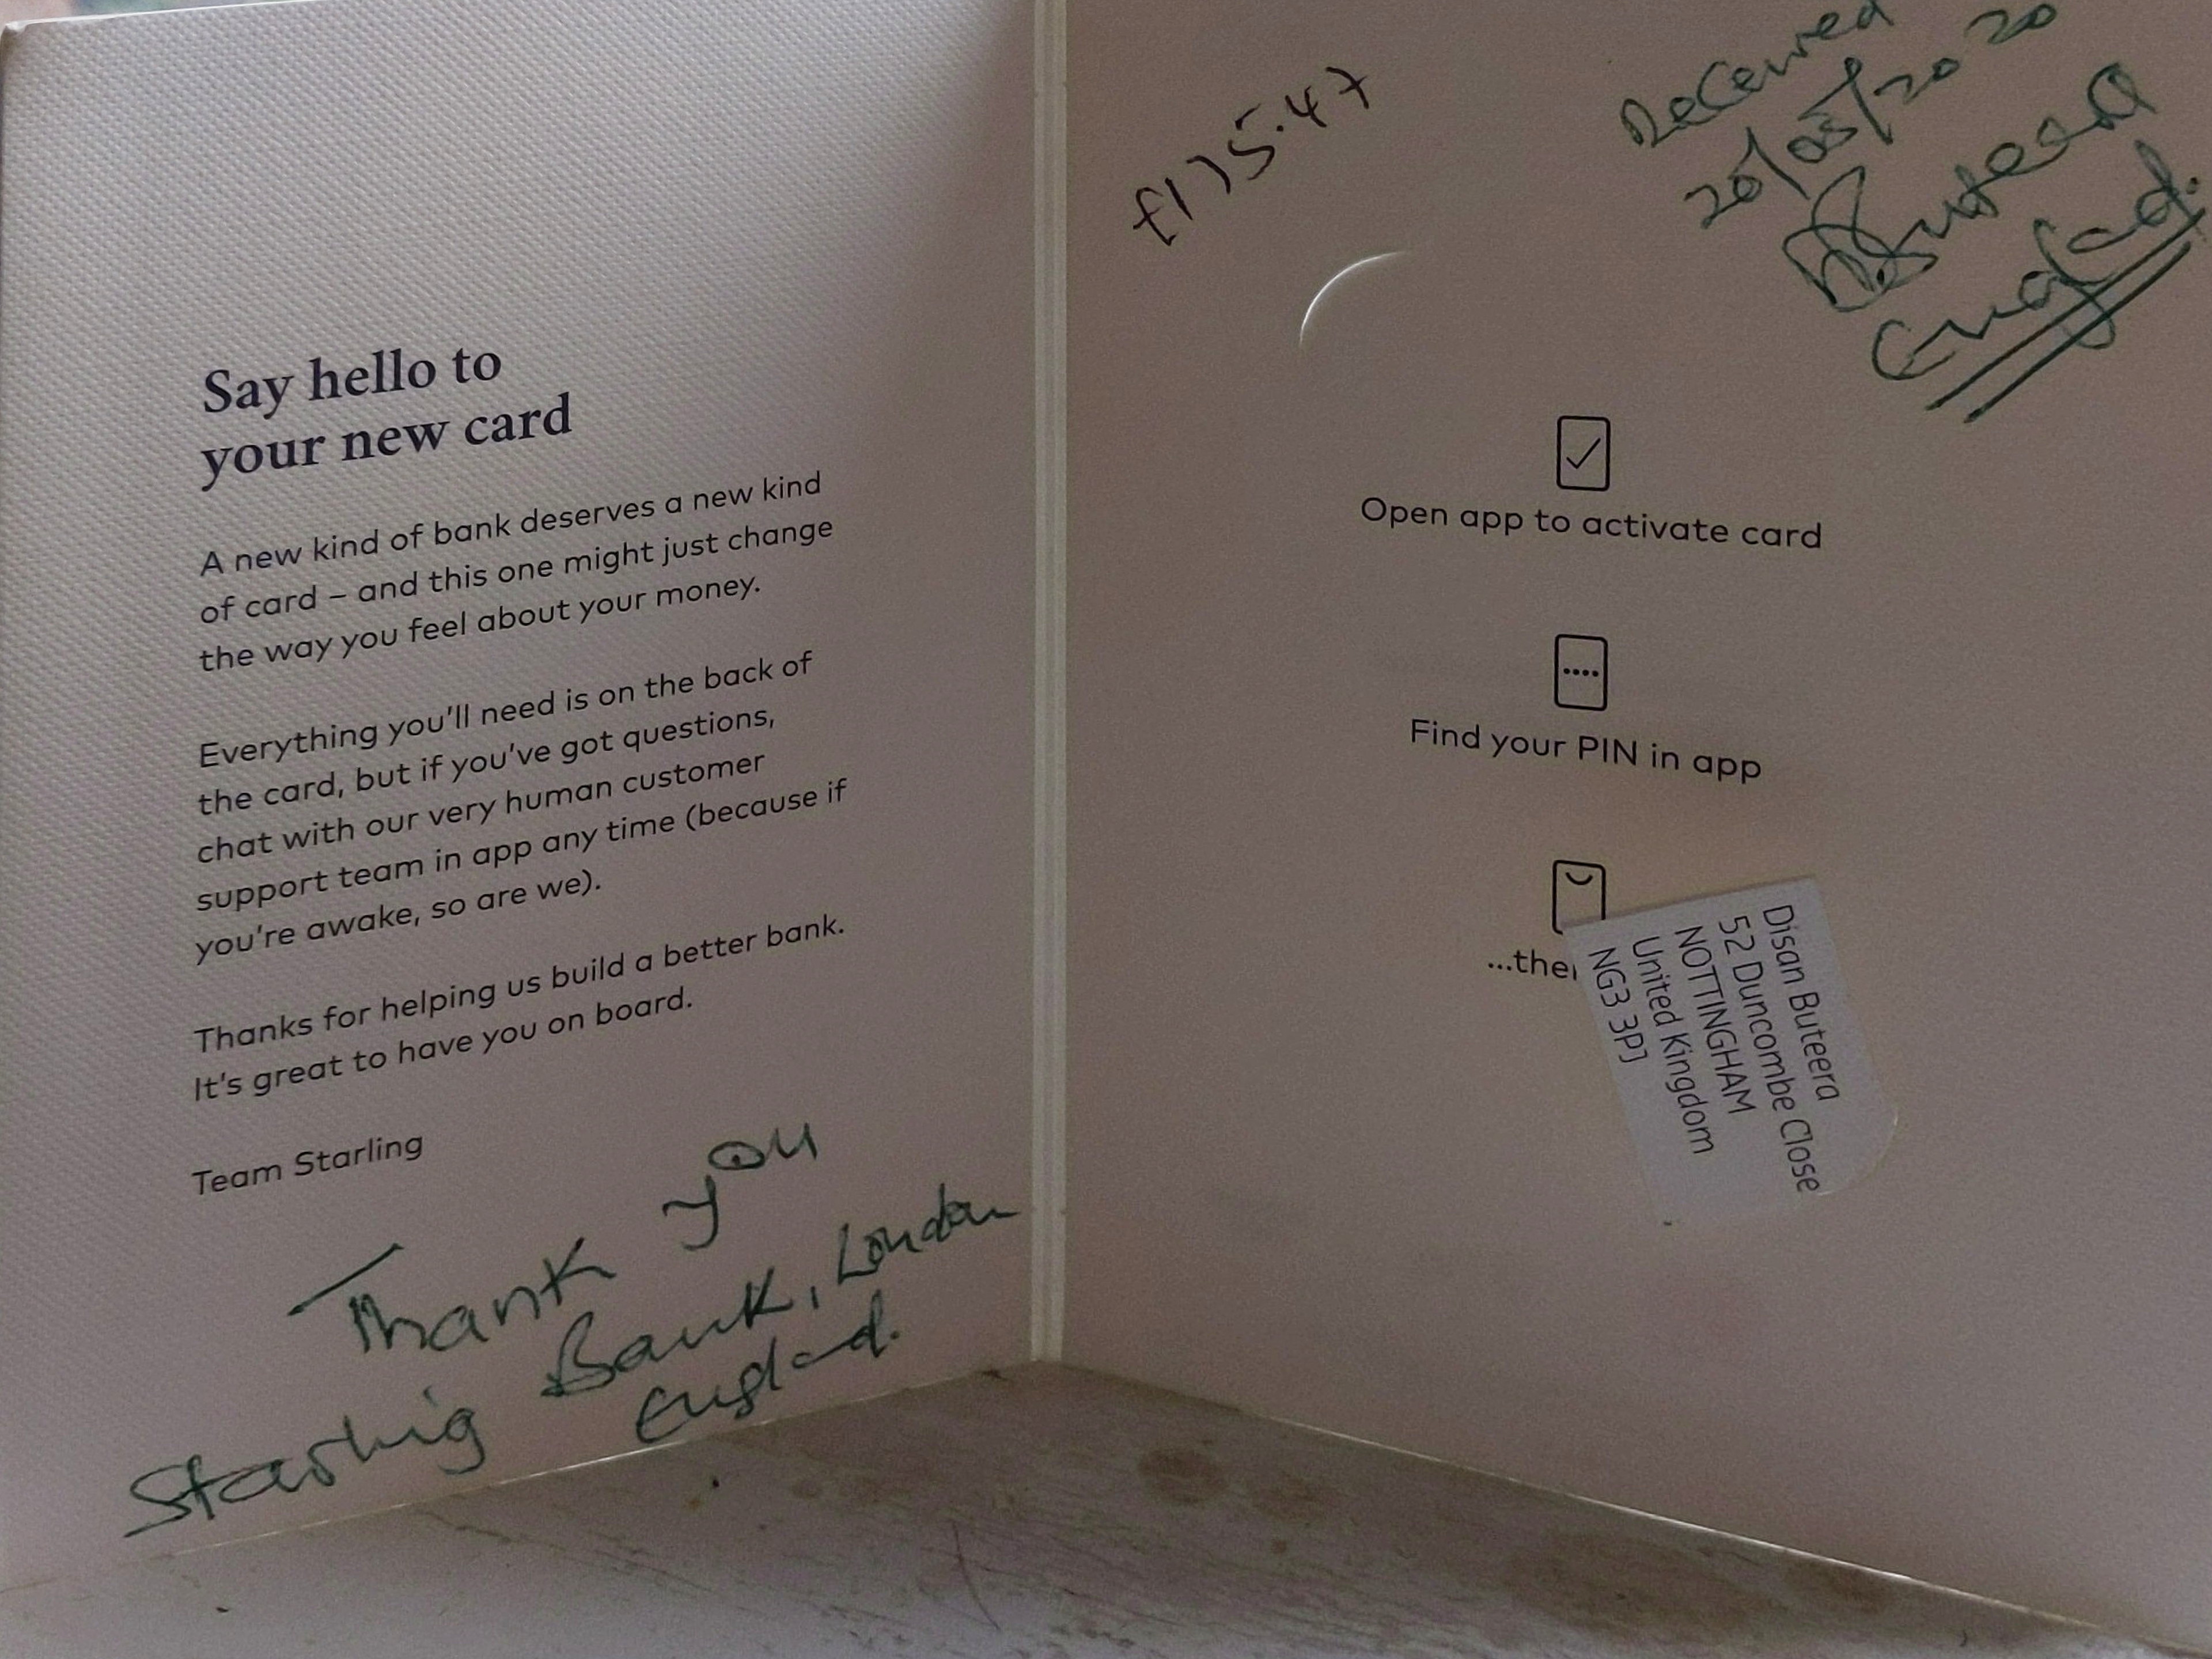 Say hello to
your new card
A new kind of bank deserves a new kind
of card – and this one might just change
the way you feel about your money.
Everything you'll need is on the back of
the card, but if you've got questions,
chat with our very human customer
support team in app any time (because if
you're awake, so are we).
Thanks for helping us build a better bank.
It's great to have you on board.
Team Starling
Thank you
Starling Bank, London
England.
Received
20/05/2020
Buteera
England.
Open app to activate card
Find your PIN in app
...the
Disan Buteera
52 Duncombe Close
NOTTINGHAM
United Kingdom
NG3 3PJ